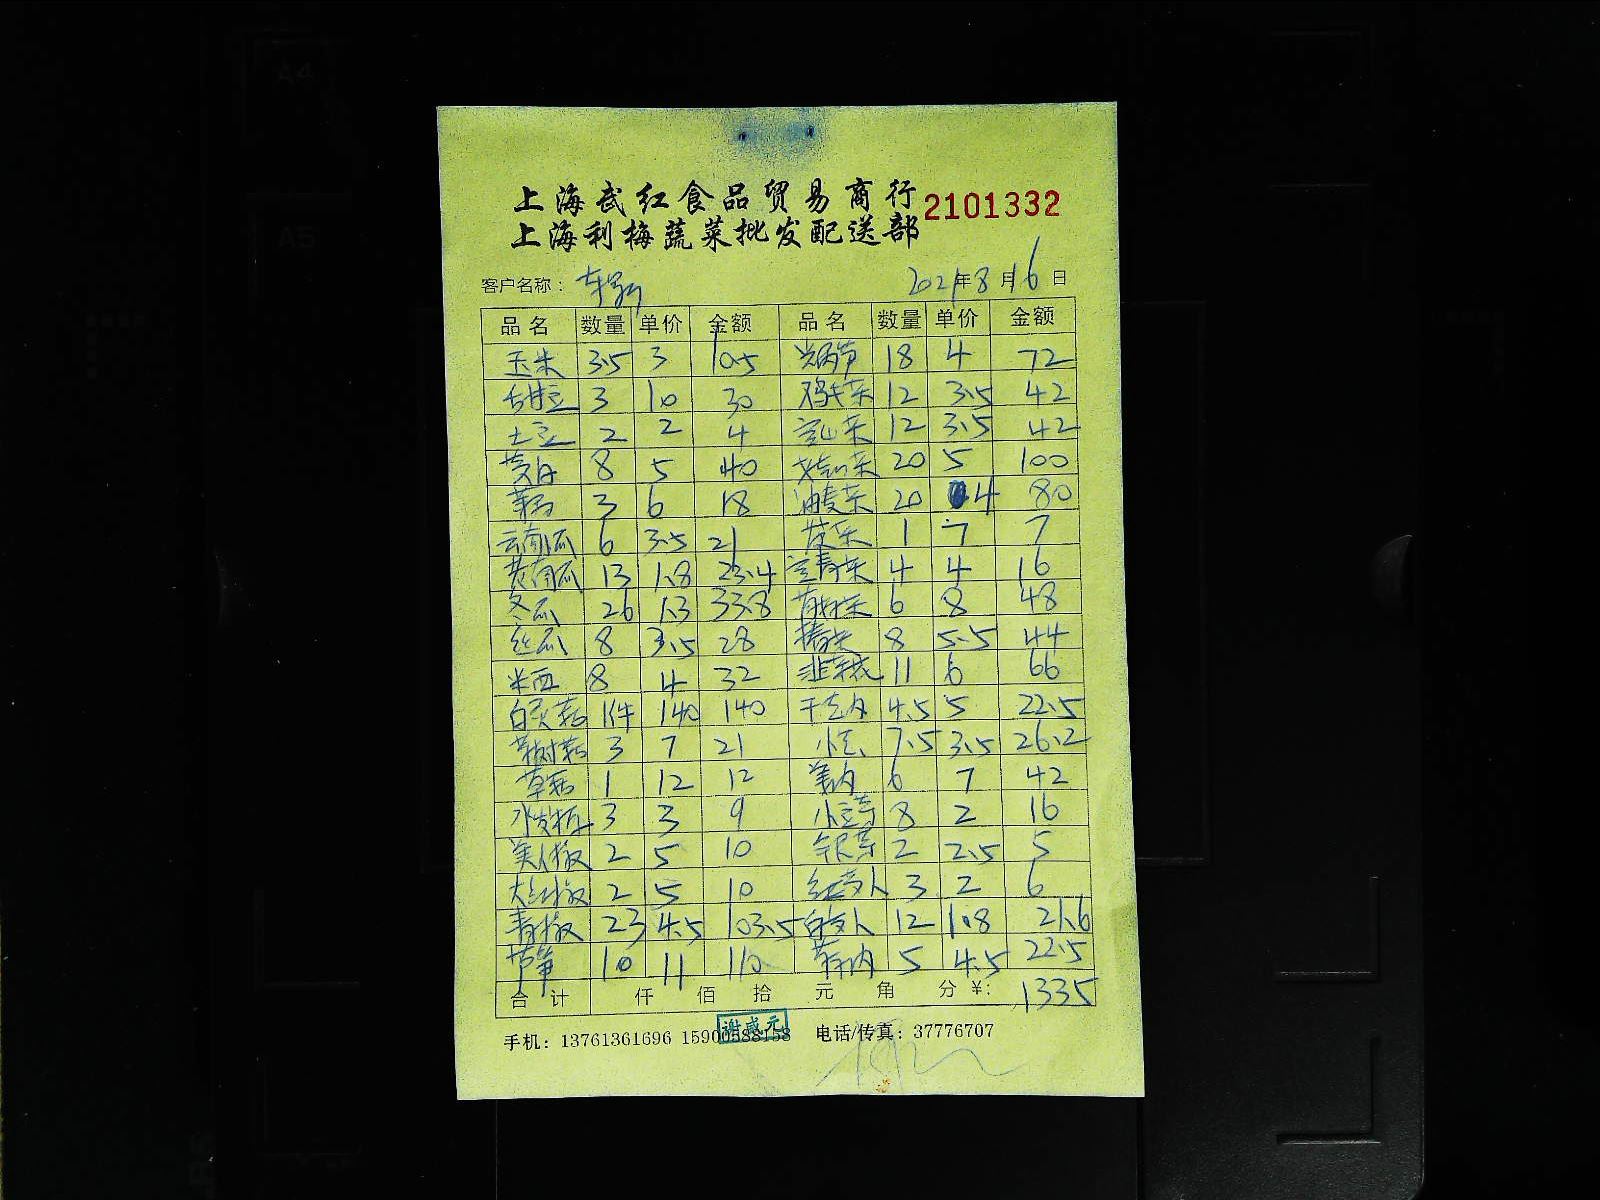 上海武红食品贸易商行 2101332
上海利梅蔬菜批发配送部
客户名称： 2021年8月16日
品名 数量 单价 金额 品名 数量 单价 金额
玉米 3.5 3 10.5 18 4 72
3 10 30 鸡毛菜 12 3.5 42
土豆 2 2 4 12 3.5 42
8 5 40 20 5 100
3 6 18 油麦菜 20 4 80
云南瓜 6 3.5 21 1 7 7
黄南瓜 13 1.8 23.4 4 4 16
冬瓜 26 1.3 33.8 6 8 48
丝瓜 8 3.5 28 8 5.5 44
米西 8 4 32 韭菜花 11 6 66
白灵菇 1件 140 140 4.5 5 22.5
茶树菇 3 7 21 7.5 3.5 26.2
草菇 1 12 12 6 7 42
3 3 9 小豆芽 8 2 16
美人椒 2 5 10 2 2.5 5
大红椒 2 5 10 3 2 6
青椒 23 4.5 103.5 12 1.8 21.6
芦笋 10 11 110 5 4.5 22.5
合计 仟 佰 拾 元 角 分 ¥: 1335
谢咸元
手机：13761361696 15900588158 电话/传真：37776707